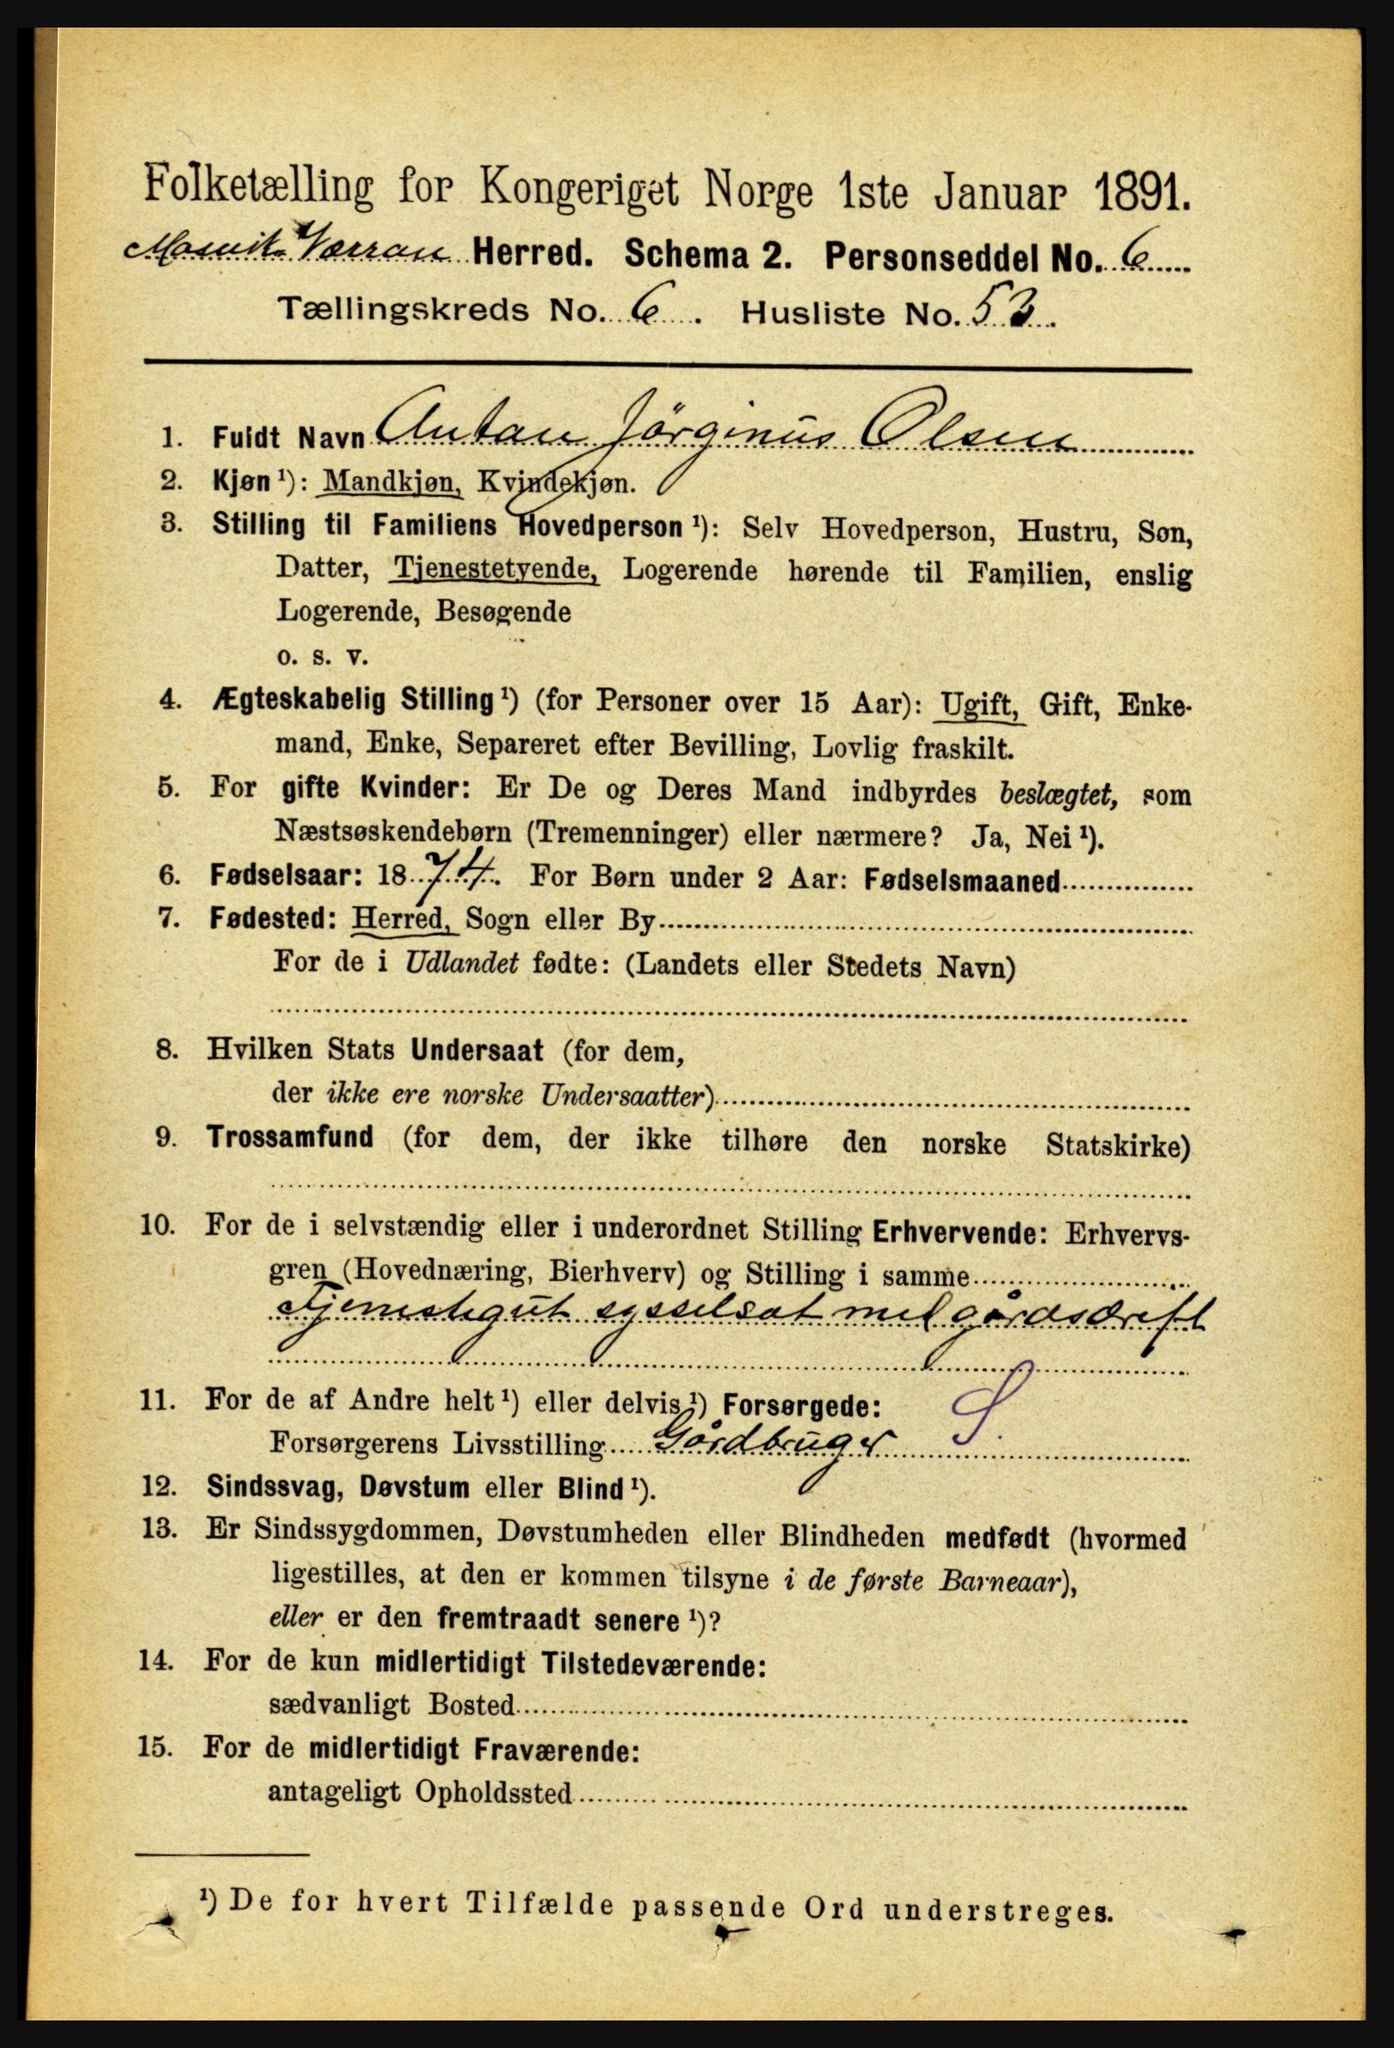 Folketælling for Kongeriget Norge 1ste Januar 1891.
Mosvik & Værran Herred. Schema 2. Personseddel No. 6
Tællingskreds No. 6. Husliste No. 53.
1. Fuldt Navn Anton Jörginus Olsen
2. Kjøn ¹): Mandkjøn, Kvindekjøn.
3. Stilling til Familiens Hovedperson ¹): Selv Hovedperson, Hustru, Søn,
Datter, Tjenestetyende, Logerende hørende til Familien, enslig
Logerende, Besøgende
o. s. v.
4. Ægteskabelig Stilling ¹) (for Personer over 15 Aar): Ugift, Gift, Enke-
mand, Enke, Separeret efter Bevilling, Lovlig fraskilt.
5. For gifte Kvinder: Er De og Deres Mand indbyrdes beslægtet, som
Næstsøskendebørn (Tremenninger) eller nærmere? Ja, Nei ¹).
6. Fødselsaar: 1874. For Børn under 2 Aar: Fødselsmaaned
7. Fødested: Herred, Sogn eller By
For de i Udlandet fødte: (Landets eller Stedets Navn)
8. Hvilken Stats Undersaat (for dem,
der ikke ere norske Undersaatter)
9. Trossamfund (for dem, der ikke tilhøre den norske Statskirke)
10. For de i selvstændig eller i underordnet Stilling Erhvervende: Erhvervs-
gren (Hovednæring, Bierhverv) og Stilling i samme
Tjenestegut sysselsat med gårdsdrift
11. For de af Andre helt ¹) eller delvis ¹) Forsørgede: S.
Forsørgerens Livsstilling Gårdbruger
12. Sindssvag, Døvstum eller Blind ¹).
13. Er Sindssygdommen, Døvstumheden eller Blindheden medfødt (hvormed
ligestilles, at den er kommen tilsyne i de første Barneaar),
eller er den fremtraadt senere ¹)?
14. For de kun midlertidigt Tilstedeværende:
sædvanligt Bosted
15. For de midlertidigt Fraværende:
antageligt Opholdssted
¹) De for hvert Tilfælde passende Ord understreges.